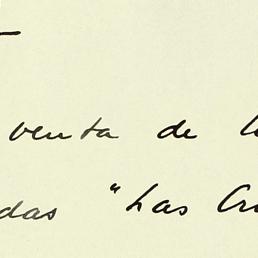 venta de
das "Las